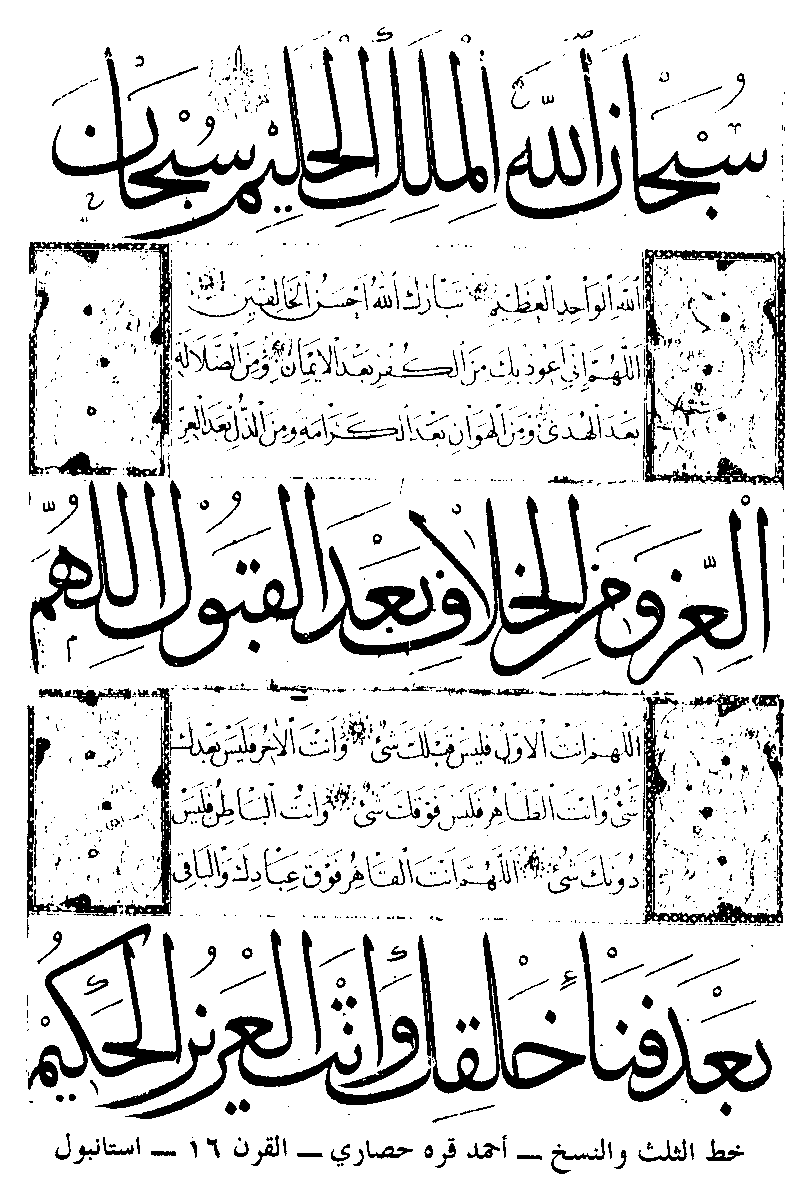 سبحان الله الملك الحليم سبحان
الله الواحد العظيم تبارك الله أحسن الخالقين
اللهم اني اعوذ بك من الكفر بعد الايمان ومن الضلالة
بعد الهدى ومن الهوان بعد الكرامة ومن الذل بعد العز
العز ومن الخلاف بعد القبول اللهم
اللهم انت الاول فليس قبلك شئ وانت الاخر فليس بعدك
شئ وانت الظاهر فليس فوقك شئ وانت الباطن فليس
دونك شئ اللهم انت القاهر فوق عبادك والباقى
بعد فناء خلقك وأنت العزيز الحكيم
خط الثلث والنسخ – أحمد قره حصاري – القرن ١٦ – استانبول